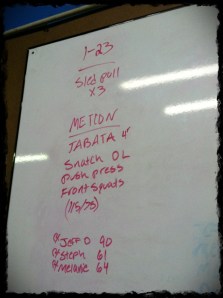 1-23
Sled pull
x3
METCON
TABATA 4'
Snatch DL
push press
Front Squats
(115/75)
@Jeff D 90
@Steph 61
@Melanie 64